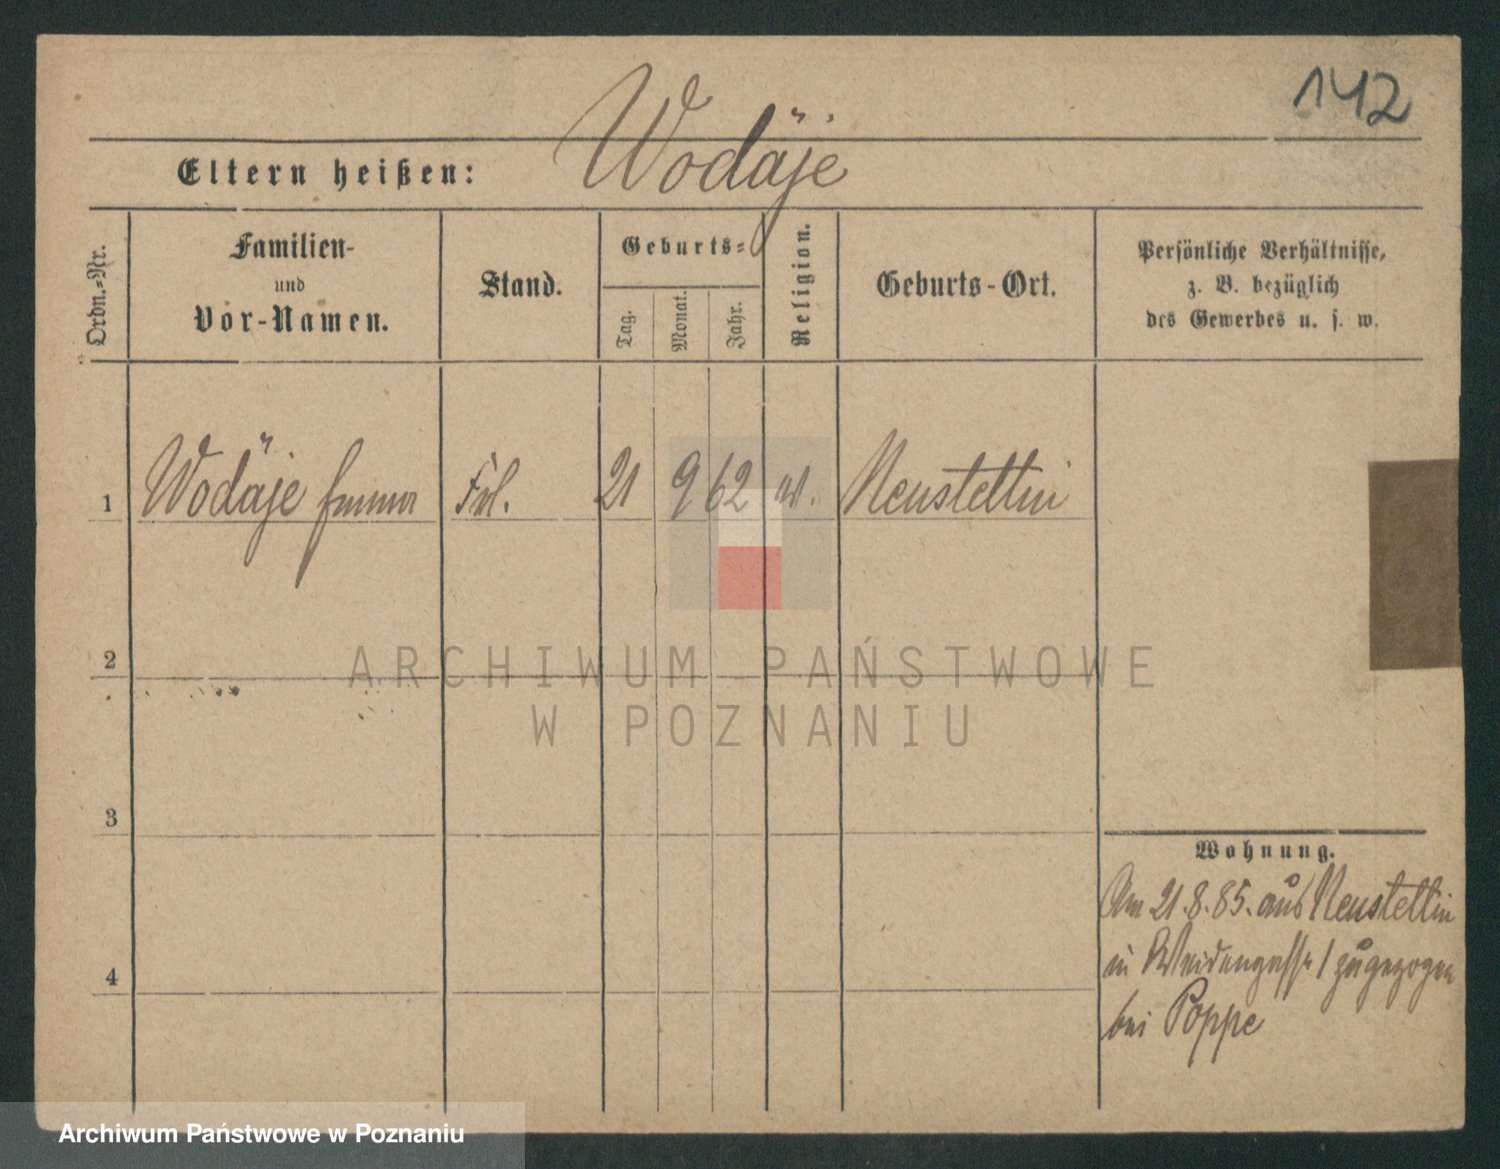 142
Wodäje
Eltern heißen:
Ordn.-Nr.
Familien-
und
Vor-Namen.
Stand.
Geburts-
Tag.
Monat.
Jahr.
Religion.
Geburts-Ort.
Persönliche Verhältnisse,
z. B. bezüglich
des Gewerbes u. s. w.
1 Wodäje Emma Frl. 21 9 62 Neustettin
2
ARCHIWUM PAŃSTWOWE
W POZNANIU
3
Wohnung.
Am 21.8.85. aus Neustettin
in Weidengasse 1 zugezogen
4
bei Poppe
Archiwum Państwowe w Poznaniu